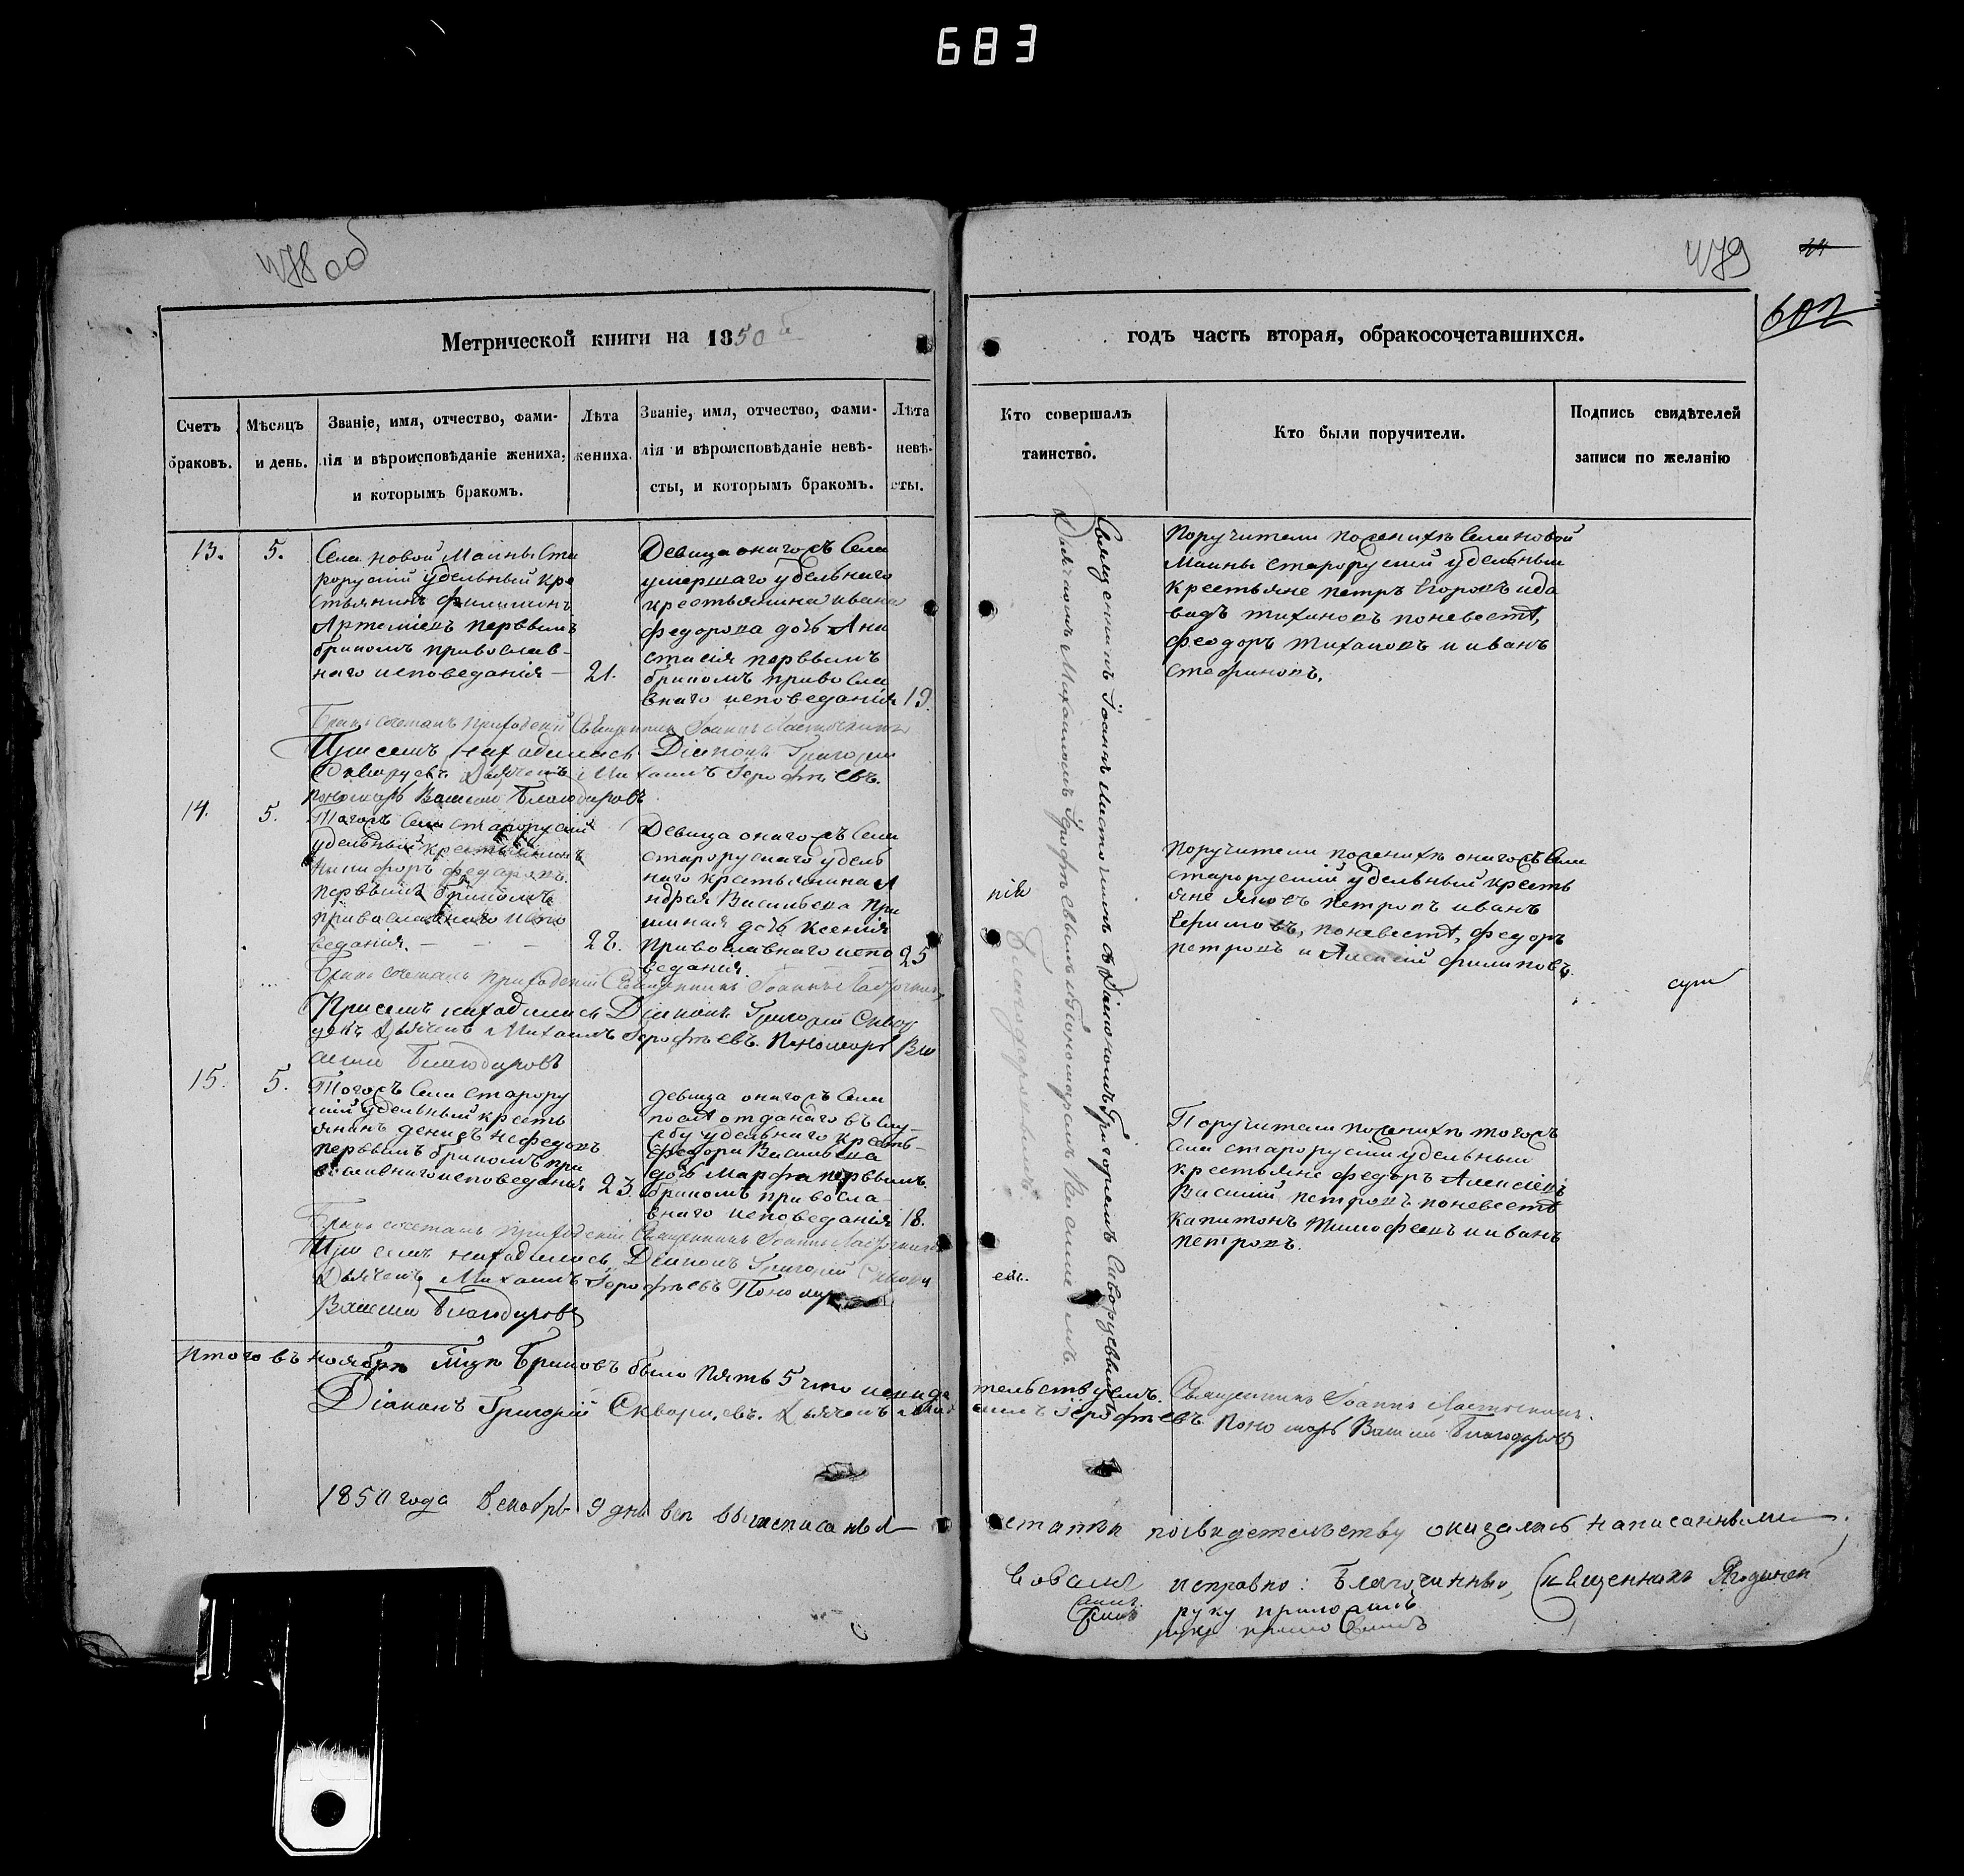 683
478 об
479
602
Метрической книги на 1850
годъ часть вторая, обракосочетавшихся.
Счетъ браковъ.
Мѣсяцъ и день.
Званіе, имя, отчество, фами-
лія и вѣроисповѣданіе жениха,
и которымъ бракомъ.
Лѣта
жениха.
Званіе, имя, отчество, фами-
лія и вѣроисповѣданіе невѣ-
сты, и которымъ бракомъ.
Лѣта
невѣ-
сты.
Кто совершалъ
таинство.
Кто были поручители.
Подпись свидѣтелей
записи по желанію
13.
5.
Села новой Маины Ста
роруский удельный кре
стьянинъ филимонъ
Артемиевъ первымъ
бракомъ православ-
наго исповедания
21.
Девица онагожъ Села
умершаго удельнаго
крестьянина ивана
федорова дочь Ана
стасия первымъ
бракомъ правосла
внаго исповедания
19.
Поручители поженихе Села новой
Маины старорусские удельныи
крестьяне петръ Егоровъ ида
видъ тихановъ поневесте,
феодоръ тихановъ и иванъ
стефановъ.
Бракъ сочеталъ приходский Священникъ Іоаннъ Ласточкинъ
При семъ находились Діаконъ Григорий
Скворцевъ Дьячекъ Михаилъ Герофеевъ.
пономарь Василий Благодаровъ
14.
5.
Тогожъ Села старорусский
удельный крестьянинъ
Никифоръ федоровъ.
первымъ бракомъ
православнаго испо
ведания.
22.
Девица онагожъ Села
старорускаго удель
наго крестьянина А
ндрея Васильева При
дочь Ксения
православнаго испо
ведания.
25
Поручители поженихе онагожъ Села
старорусский удельный кресть
яне яковъ петровъ иванъ
Ефимовъ, поневесте, федоръ
петровъ и Алексий филиповъ.
Бракъ сочеталъ приходский Священникъ Іоаннъ Ласточкинъ
При семъ находились Діаконъ Григорий Сквор
цевъ Дьячекъ Михаилъ Герофеевъ. Пономарь Ва
силий Благодаровъ
15.
5.
Тогожъ Села старору
ский удельный кресть
янинъ денисъ нефедовъ
первымъ бракомъ пра
вославнаго исповедания
23.
девица онагожъ Села
после отданаго въ слу-
жбу удельнаго кресть-
федора Васильева
дочь Марфа первымъ.
бракомъ правосла-
внаго исповедания
18.
Поручители поженихе тогожъ
села старорусский удельныи
крестьяне федоръ Алексиевъ
Василий петровъ поневесте
капитонъ Тимофеевъ и иванъ
петровъ.
Бракъ сочеталъ приходский Священникъ Іоаннъ Ласточкинъ
При семъ находились, Діаконъ Григорий Скворц
Дьячекъ Михаилъ Герофеевъ Пономар
Василий Благодаровъ
Священникъ Іоаннъ Ласточкинъ съ Діакономъ Григориемъ Скворцевымъ
Дьячкомъ Михаиломъ Герофеевымъ и Пономаремъ Василиемъ
Благодаровымъ
Итого въ ноябре Браковъ было Пять 5 что и свиде
тельствуемъ. Священникъ Іоаннъ Ласточкинъ.
Діаконъ Григорий Скворцевъ. Дьячекъ Миха
илъ Герофеевъ. Пономарь Василий Благодаровъ
1850 года Декабрь 9 дня все вышеписаныя
статьи по свидетельству оказались написанными
исправно: Благочинный, Священникъ
руку приложилъ
руку приложилъ